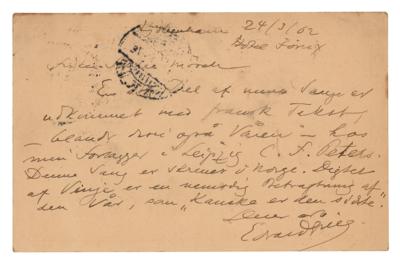 Kjøbenhavn 24/3/02
Hotel Fönix
En Del af mine Sange er
udkommet med fransk Tekst,
blandt dem også "Våren" – hos
min Forlægger i Leipzig C. F. Peters.
Denne Sang er skrevet i Norge. Digtet
af Vinje er en vemodig Betragtning af
den Vår, som "Kanske er den sidste".
Deres
Edvard Grieg